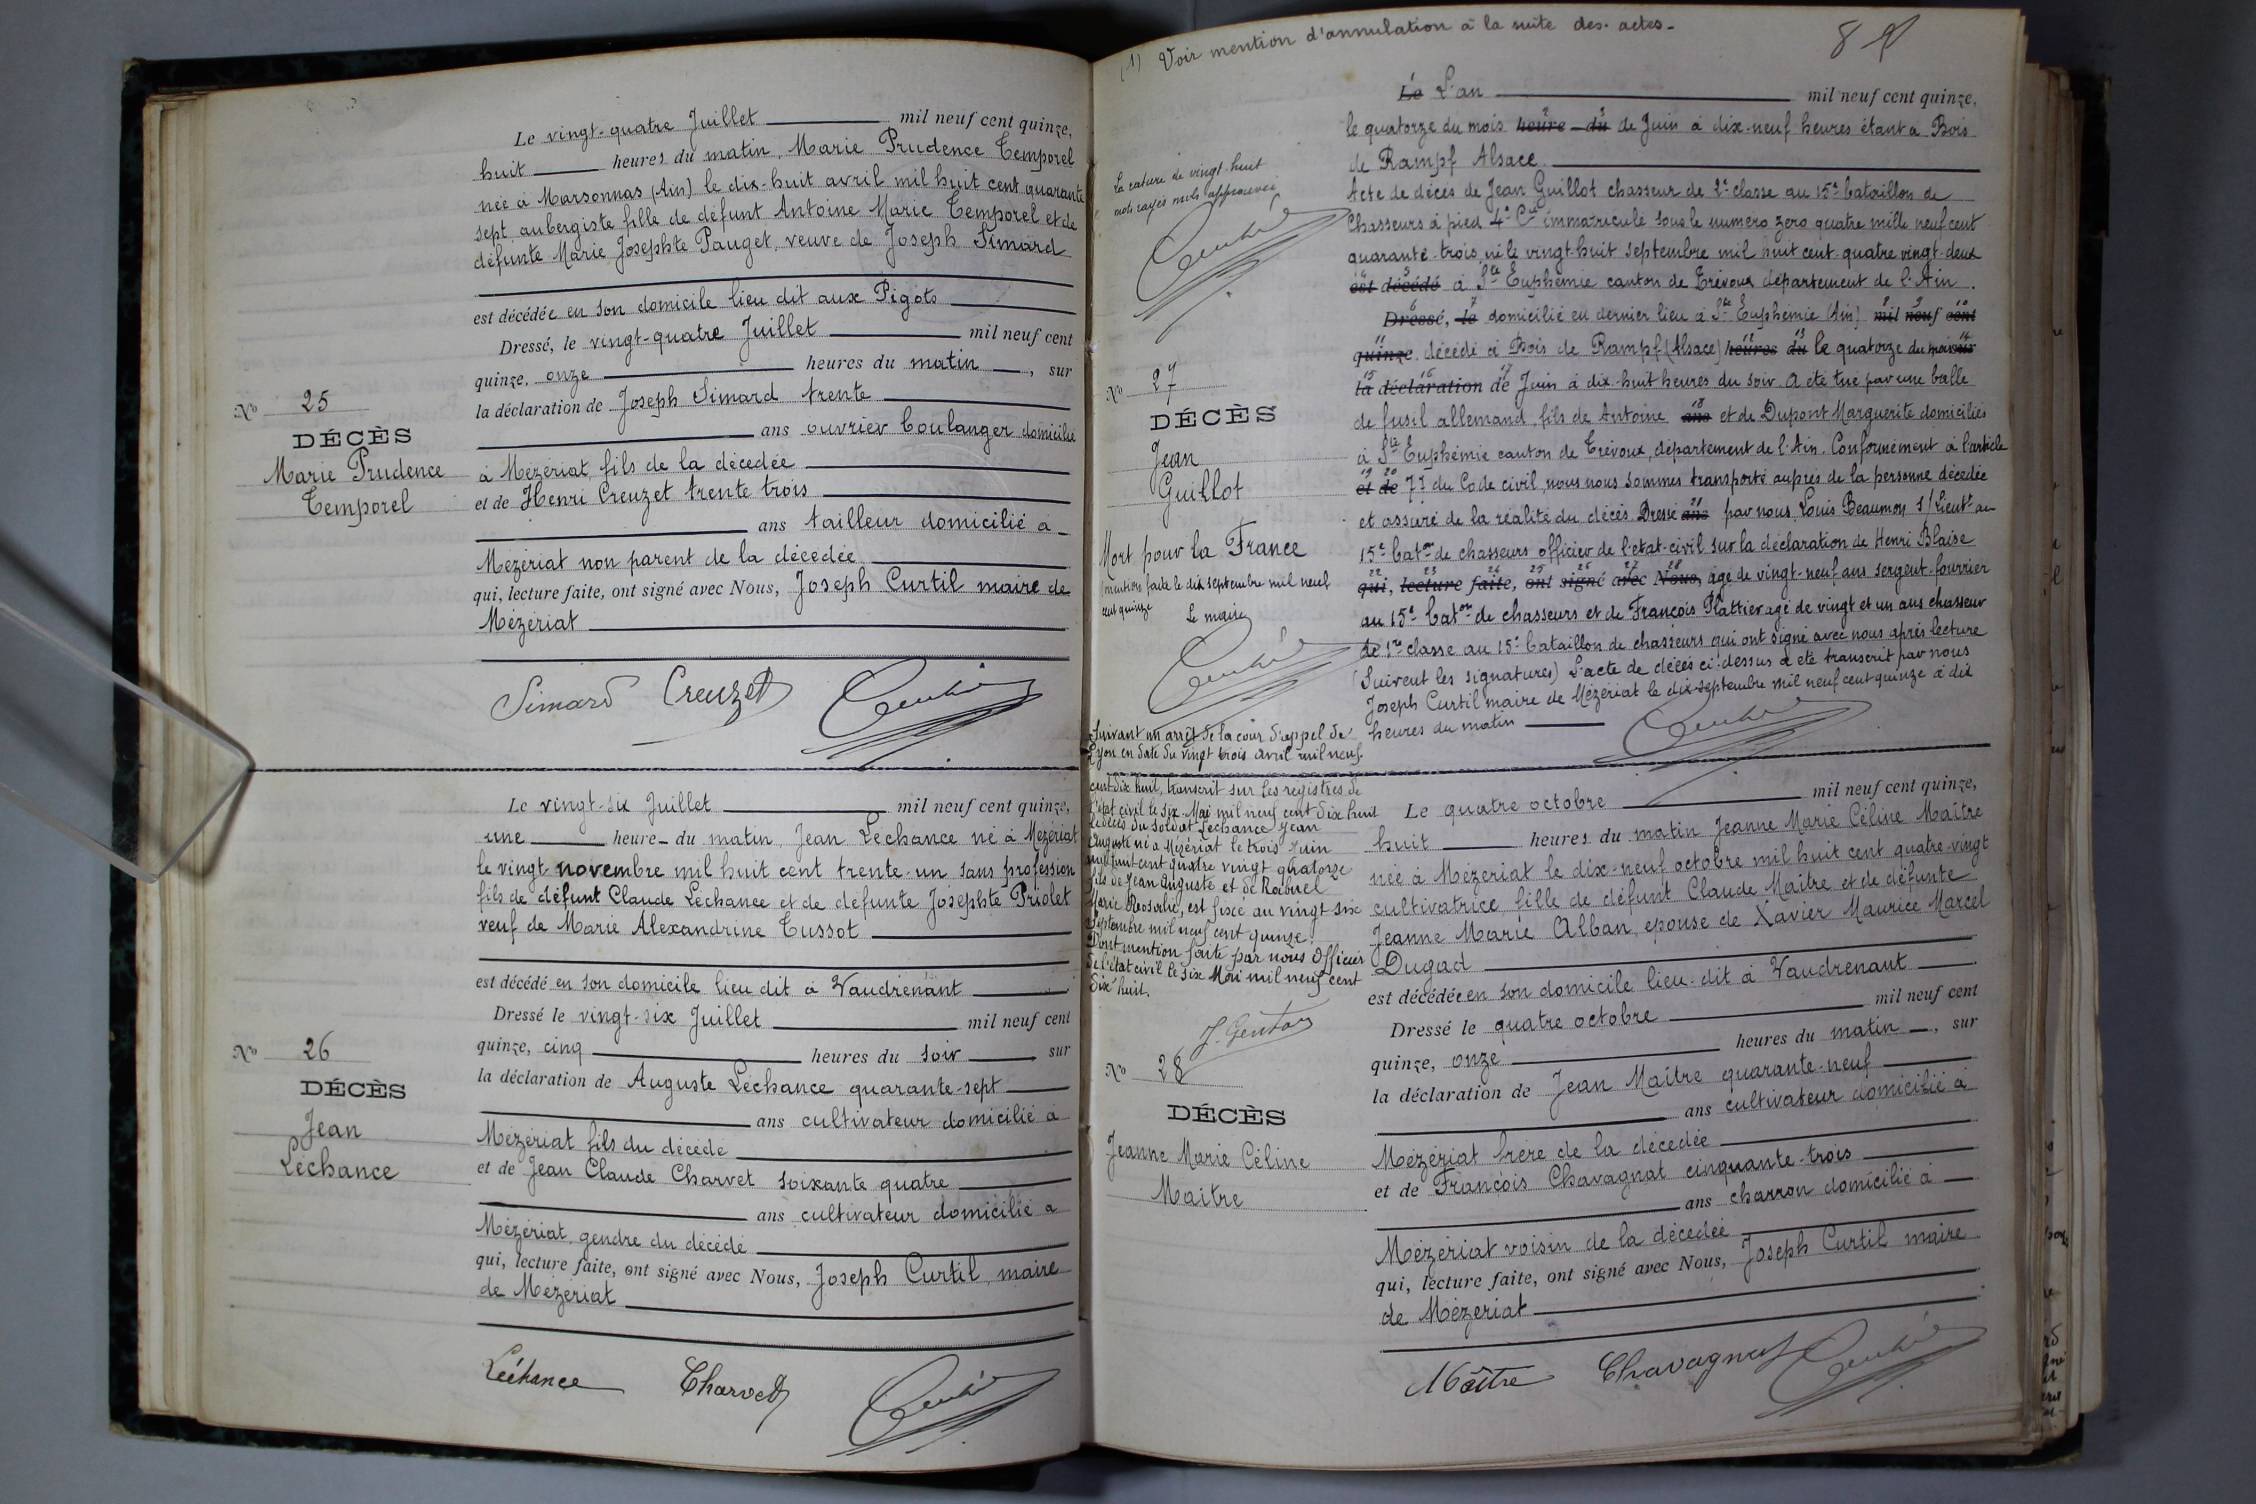 Le vingt-quatre Juillet mil neuf cent quinze,
huit heures du matin, Marie Prudence Temporel
née à Marsonnas (Ain) le dix-huit avril mil huit cent quarante
sept, aubergiste fille de défunt Antoine Marie Temporel et de
défunte Marie Josephte Pauget, veuve de Joseph Simard
est décédée en son domicile lieu dit aux Pigots
Dressé, le vingt-quatre Juillet mil neuf cent
quinze, onze heures du matin, sur
la déclaration de Joseph Simard trente
ans ouvrier boulanger domicilié
à Mézériat, fils de la décédée
et de Henri Creuzet trente trois
ans tailleur domicilié à
Mézériat non parent de la décédée
qui, lecture faite, ont signé avec Nous, Joseph Curtil maire de
Mézériat
No 25
DÉCÈS
Marie Prudence
Temporel
Simard Creuzet
Le vingt-six Juillet mil neuf cent quinze,
une heure du matin, Jean Léchance né à Mézériat
le vingt novembre mil huit cent trente-un sans profession
fils de défunt Claude Léchance et de défunte Josephte Priolet
veuf de Marie Alexandrine Tussot
est décédé en son domicile lieu dit à Vaudrenant
Dressé le vingt-six Juillet mil neuf cent
quinze, cinq heures du soir sur
la déclaration de Auguste Léchance quarante-sept
ans cultivateur domicilié à
Mézériat fils du décédé
et de Jean Claude Charvet soixante quatre
ans cultivateur domicilié à
Mézériat, gendre du décédé
qui, lecture faite, ont signé avec Nous, Joseph Curtil, maire
de Mézériat
No 26
DÉCÈS
Jean
Léchance
Léchance Charvet
(1) Voir mention d'annulation à la suite des actes
8
Le L'an mil neuf cent quinze,
le quatorze du mois heure du de Juin à dix-neuf heures étant à Bois
de Rampf Alsace
Acte de décès de Jean Guillot chasseur de 2e classe au 15e bataillon de
Chasseurs à pied 4e Cie immatriculé sous le numéro zéro quatre mille neuf cent
quarante-trois, né le vingt-huit septembre mil huit cent quatre vingt-deux
est décédé à Ste Euphémie canton de Trévoux département de l'Ain.
Dressé, le domicilié en dernier lieu à Ste Euphémie (Ain) mil neuf cent
quinze, décédé à Bois de Rampf (Alsace) heures du le quatorze du mois sur
la déclaration de Juin à dix-huit heures du soir a été tué par une balle
de fusil allemand, fils de Antoine ans et de Dupont Marguerite domiciliés
à Ste Euphémie canton de Trévoux, département de l'Ain. Conformément à l'article
et de 77 du Code civil, nous nous sommes transporté auprès de la personne décédée
et assuré de la réalité du décès. Dressé ans par nous, Louis Beaumon S/Lieut au
15e baton de chasseurs officier de l'état-civil sur la déclaration de Henri Blaise
qui, lecture faite, ont signé avec Nous, âgé de vingt-neuf ans sergent-fourrier
au 15e baton de chasseurs et de François Plattier agé de vingt et un ans chasseur
de 1re classe au 15e bataillon de chasseurs qui ont signé avec nous après lecture
(Suivent les signatures) L'acte de décès ci-dessus a été transcrit par nous
Joseph Curtil maire de Mézériat le dix septembre mil neuf cent quinze à dix
heures du matin
La rature de vingt-huit
mots rayés nuls approuvée
No 27
DÉCÈS
Jean
Guillot
Mort pour la France
mention faite le dix septembre mil neuf
cent quinze
Le maire
Suivant un arrêt de la cour d'appel de
Lyon en date du vingt trois avril mil neuf
cent dix huit, transcrit sur les registres de
l'état civil le six Mai mil neuf cent dix huit
le décès du soldat Léchance Jean
Auguste né à Mézériat le trois Juin
mil huit cent quatre vingt quatorze
fils de Jean Auguste et de Rabuel
Marie Rosalie, est fixé au vingt six
Septembre mil neuf cent quinze.
Dont mention faite par nous Officier
de l'état civil le six Mai mil neuf cent
dix huit.
Le quatre octobre mil neuf cent quinze,
huit heures du matin Jeanne Marie Céline Maître
née à Mézériat le dix-neuf octobre mil huit cent quatre-vingt
cultivatrice fille de défunt Claude Maître et de défunte
Jeanne Marie Alban, épouse de Xavier Maurice Marcel
Dugad
est décédée en son domicile lieu-dit à Vaudrenant
Dressé le quatre octobre mil neuf cent
quinze, onze heures du matin, sur
la déclaration de Jean Maître quarante-neuf
ans cultivateur domicilié à
Mézériat frère de la décédée
et de François Chavagnat cinquante-trois
ans charron domicilié à
Mézériat voisin de la décédée
qui, lecture faite, ont signé avec Nous, Joseph Curtil maire
de Mézériat
No 28
DÉCÈS
Jeanne Marie Céline
Maître
Maître Chavagnat